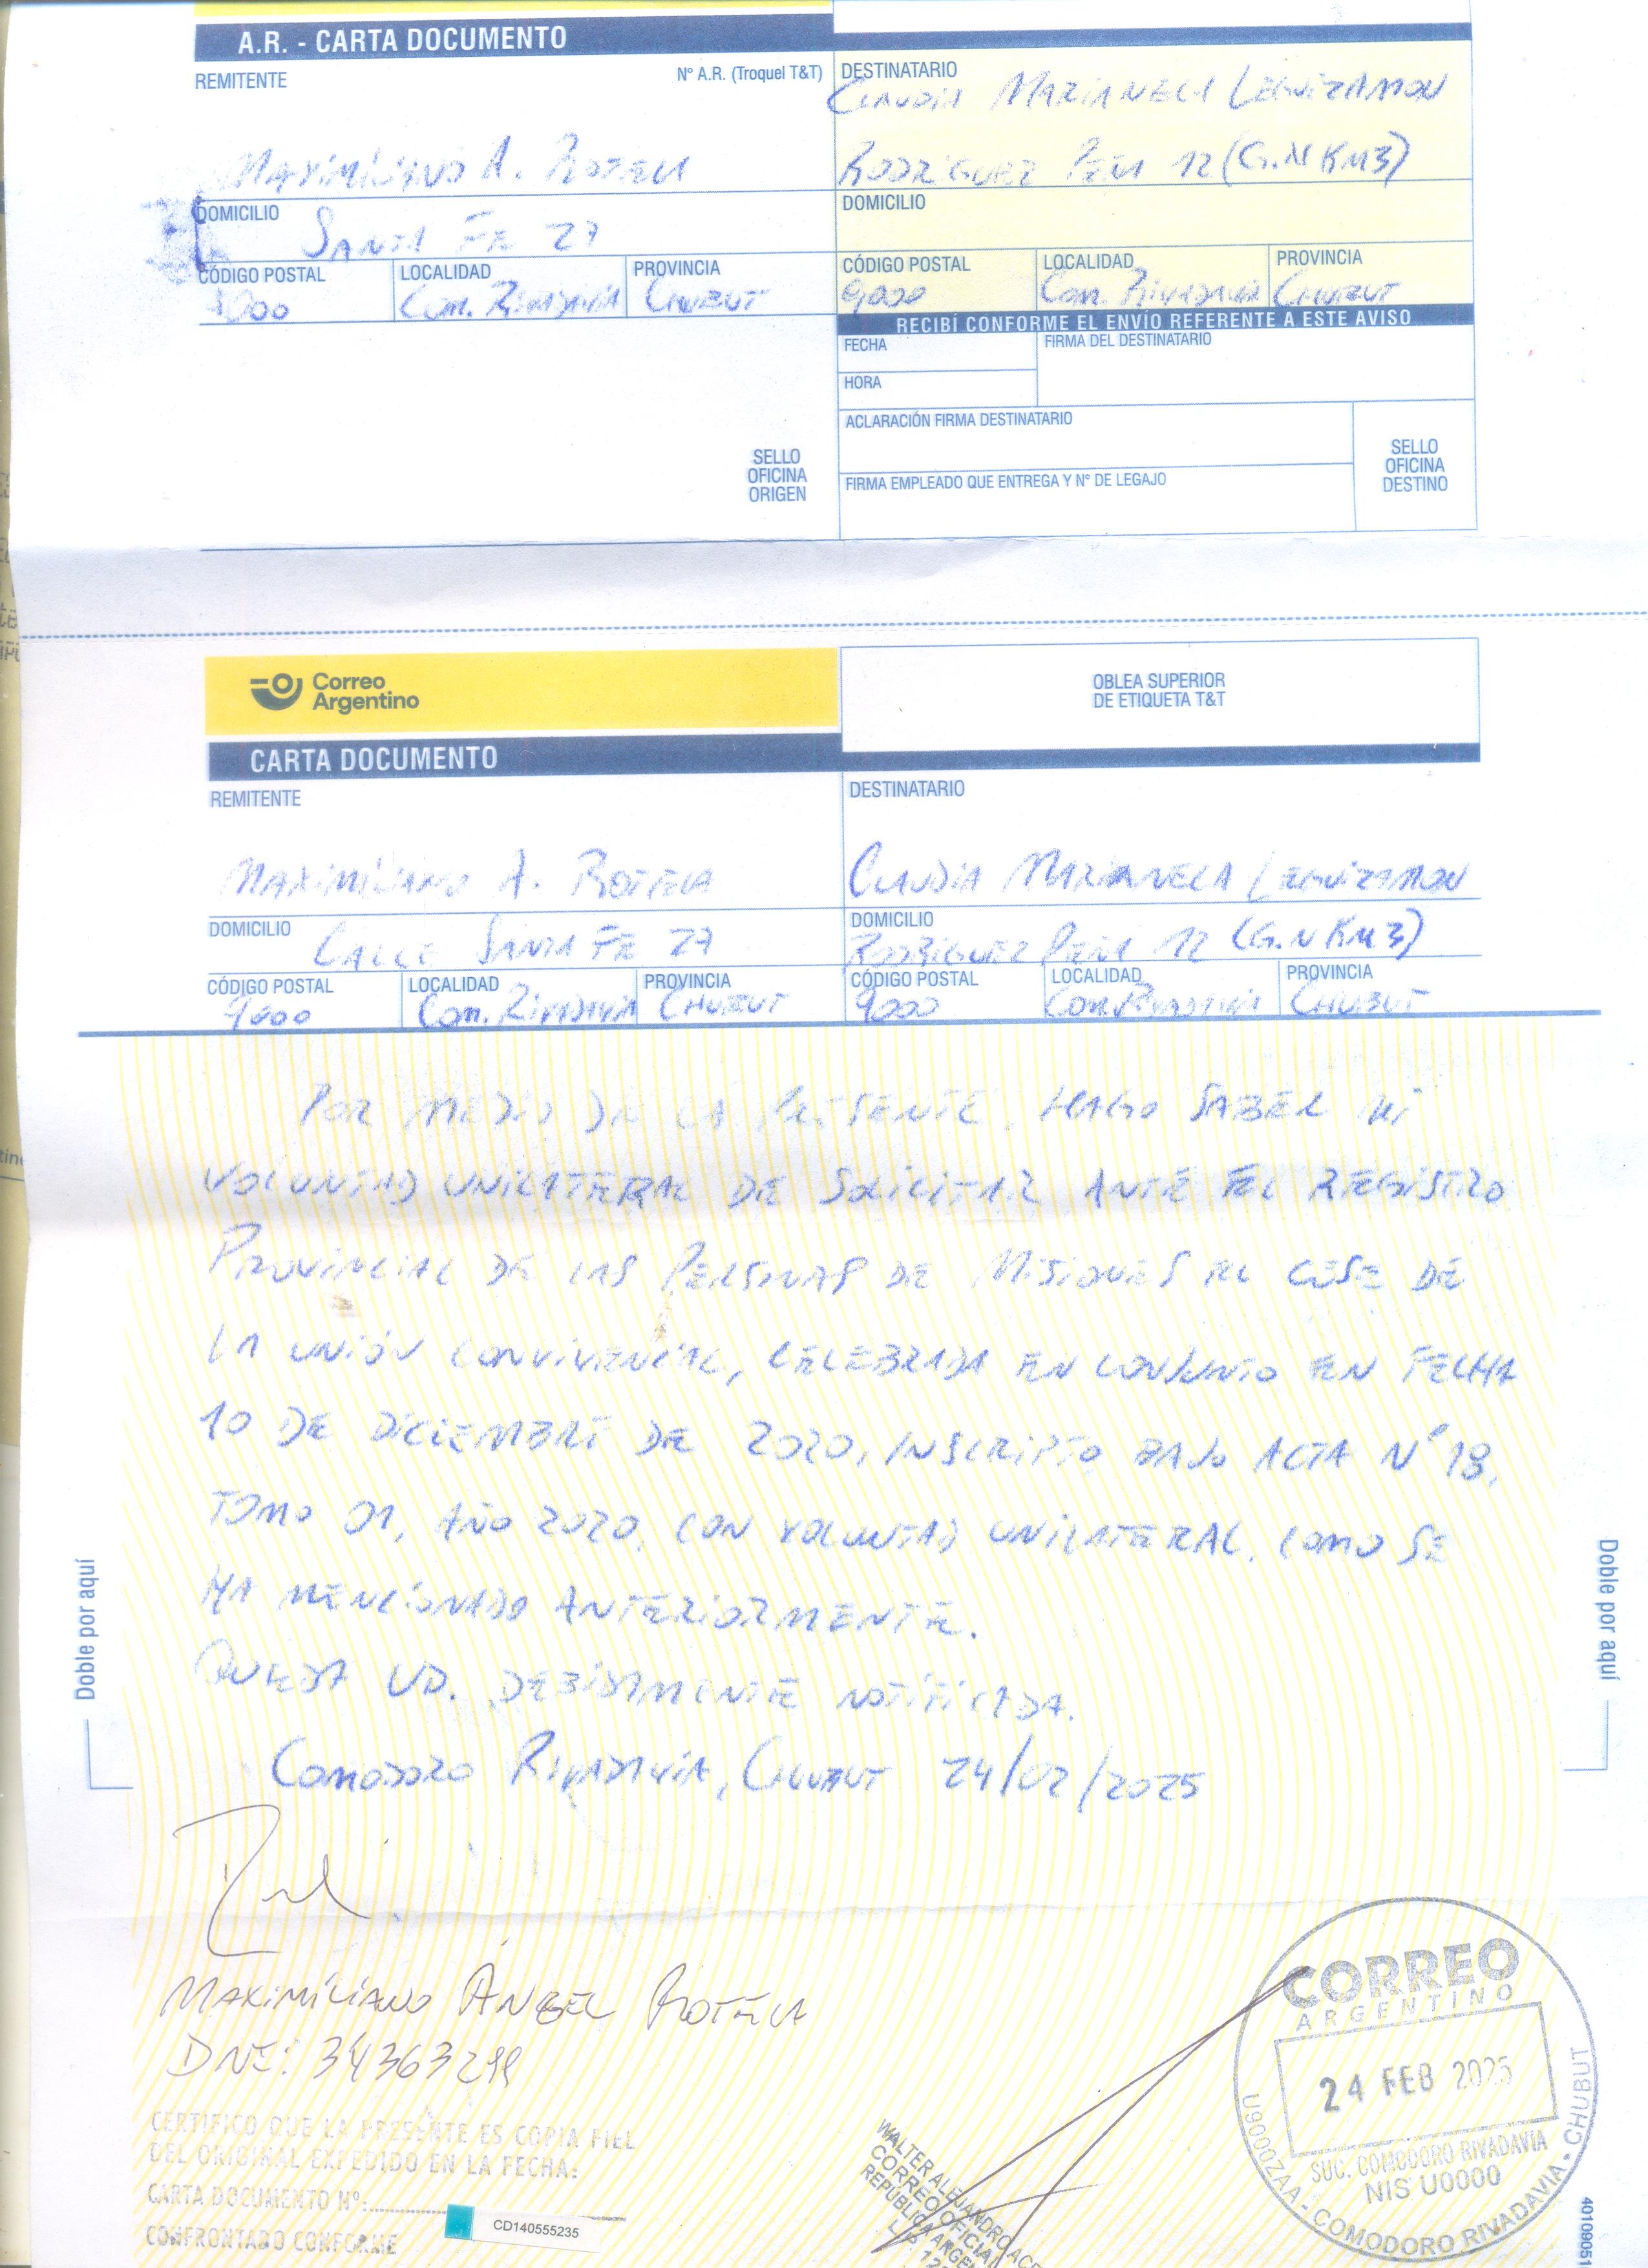 A.R. - CARTA DOCUMENTO
REMITENTE
N° A.R. (Troquel T&T)
MAXIMILIANO A. ROTELA
DOMICILIO
SANTA FE 27
CÓDIGO POSTAL
LOCALIDAD
PROVINCIA
9000
COM. RIVADAVIA
CHUBUT
SELLO
OFICINA
ORIGEN
DESTINATARIO
CLAUDIA MARIANELA LEGUIZAMON
RODRIGUEZ PEÑA 12 (G.N KM3)
DOMICILIO
CÓDIGO POSTAL
LOCALIDAD
PROVINCIA
9000
COM. RIVADAVIA
CHUBUT
RECIBÍ CONFORME EL ENVÍO REFERENTE A ESTE AVISO
FECHA
FIRMA DEL DESTINATARIO
HORA
ACLARACIÓN FIRMA DESTINATARIO
FIRMA EMPLEADO QUE ENTREGA Y N° DE LEGAJO
SELLO
OFICINA
DESTINO
Correo
Argentino
OBLEA SUPERIOR
DE ETIQUETA T&T
CARTA DOCUMENTO
REMITENTE
MAXIMILIANO A. ROTELA
DOMICILIO
CALLE SANTA FE 27
CÓDIGO POSTAL
LOCALIDAD
PROVINCIA
9000
COM. RIVADAVIA
CHUBUT
DESTINATARIO
CLAUDIA MARIANELA LEGUIZAMON
DOMICILIO
RODRIGUEZ PEÑA 12 (G.N KM3)
CÓDIGO POSTAL
LOCALIDAD
PROVINCIA
9000
COM. RIVADAVIA
CHUBUT
POR MEDIO DE LA PRESENTE, HAGO SABER MI
VOLUNTAD UNILATERAL DE SOLICITAR ANTE EL REGISTRO
PROVINCIAL DE LAS PERSONAS DE MISIONES EL CESE DE
LA UNIÓN CONVIVENCIAL, CELEBRADA EN CONJUNTO EN FECHA
10 DE DICIEMBRE DE 2020, INSCRIPTO BAJO ACTA N° 18,
TOMO 01, AÑO 2020, CON VOLUNTAD UNILATERAL. COMO SE
HA MENCIONADO ANTERIORMENTE.
QUEDA UD. DEBIDAMENTE NOTIFICADA.
COMODORO RIVADAVIA, CHUBUT 24/02/2025
Doble por aquí
Doble por aquí
MAXIMILIANO ÁNGEL ROTELA
DNI: 34363299
CERTIFICO QUE LA PRESENTE ES COPIA FIEL
DEL ORIGINAL EXPEDIDO EN LA FECHA:
CARTA DOCUMENTO N°:
CD140555235
CONFRONTADO CONFORME
WALTER ALEJANDRO
CORREO OFICIAL
REPÚBLICA
CORREO
ARGENTINO
24 FEB 2025
SUC. COMODORO RIVADAVIA
NIS U0000
U9000ZAA - COMODORO RIVADAVIA - CHUBUT
40109051